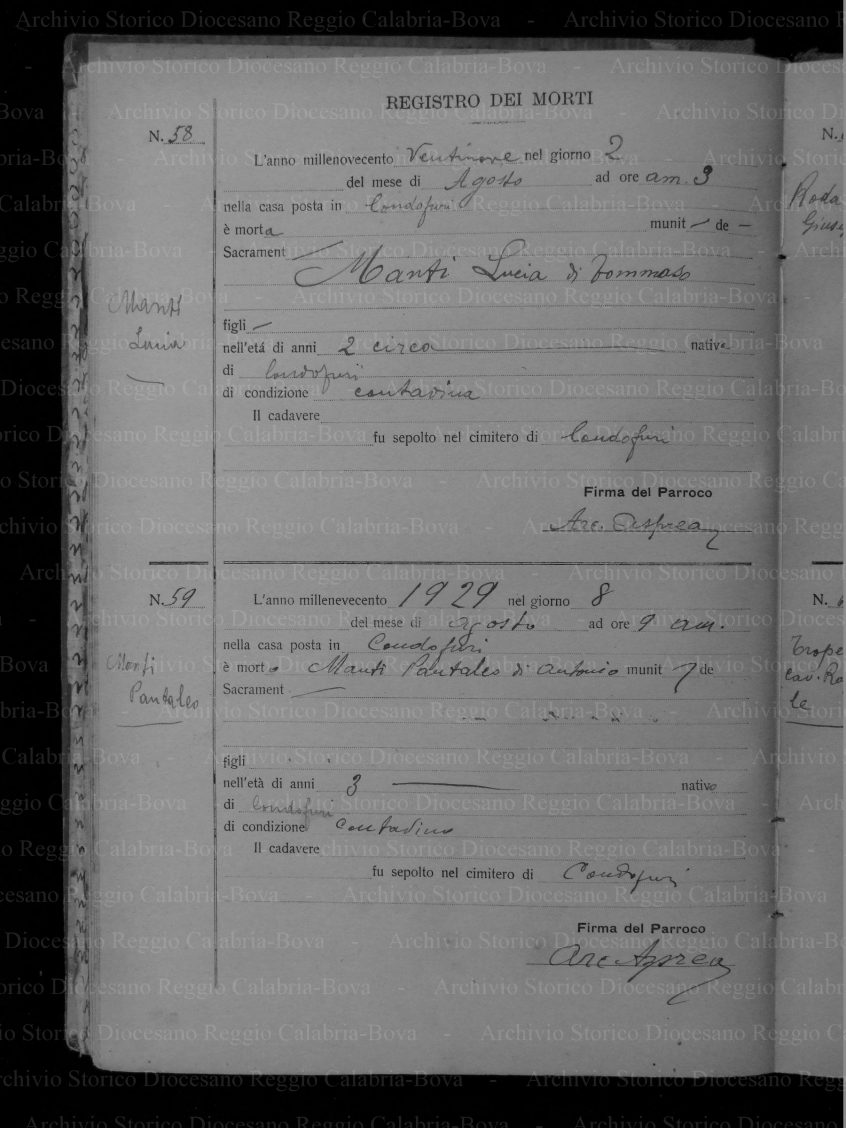 REGISTRO DEI MORTI
N. 58
L'anno millenovecento Ventinove nel giorno 2
del mese di Agosto ad ore am. 3
nella casa posta in Condofuri
è morta munit — de —
Sacrament —
Manti Lucia di Tommaso
Manti
Lucia
figli —
nell'etá di anni 2 circa — nativa
di Condofuri
di condizione contadina
Il cadavere
fu sepolto nel cimitero di Condofuri
Firma del Parroco
Arc. Asprea
N. 59
L'anno millenevecento 1929 nel giorno 8
del mese di agosto ad ore 9 am.
nella casa posta in Condofuri
è morto Manti Pantaleo di Antonio munit de
Sacrament —
Manti
Pantaleo
figli
nell'età di anni 3 — nativo
di Condofuri
di condizione Contadino
Il cadavere
fu sepolto nel cimitero di Condofuri
Firma del Parroco
Arc Asprea
N.
Roda
N.
Trope
cav. Ro
le
Archivio Storico Diocesano Reggio Calabria-Bova